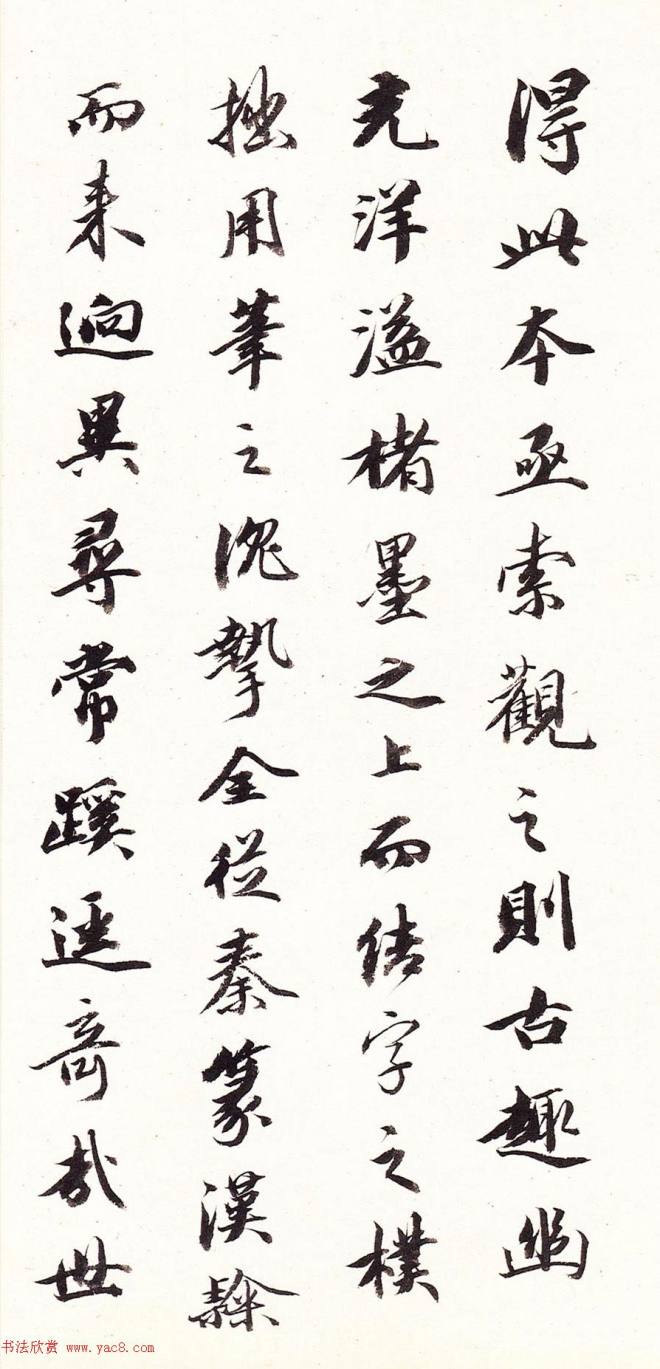 得此本亟索觀之則古趣幽
光洋溢楮墨之上而結字之樸
拙用筆之沈摯全從秦篆漢隸
而来逈異尋常蹊逕奇哉世
书法欣赏 www.yac8.com